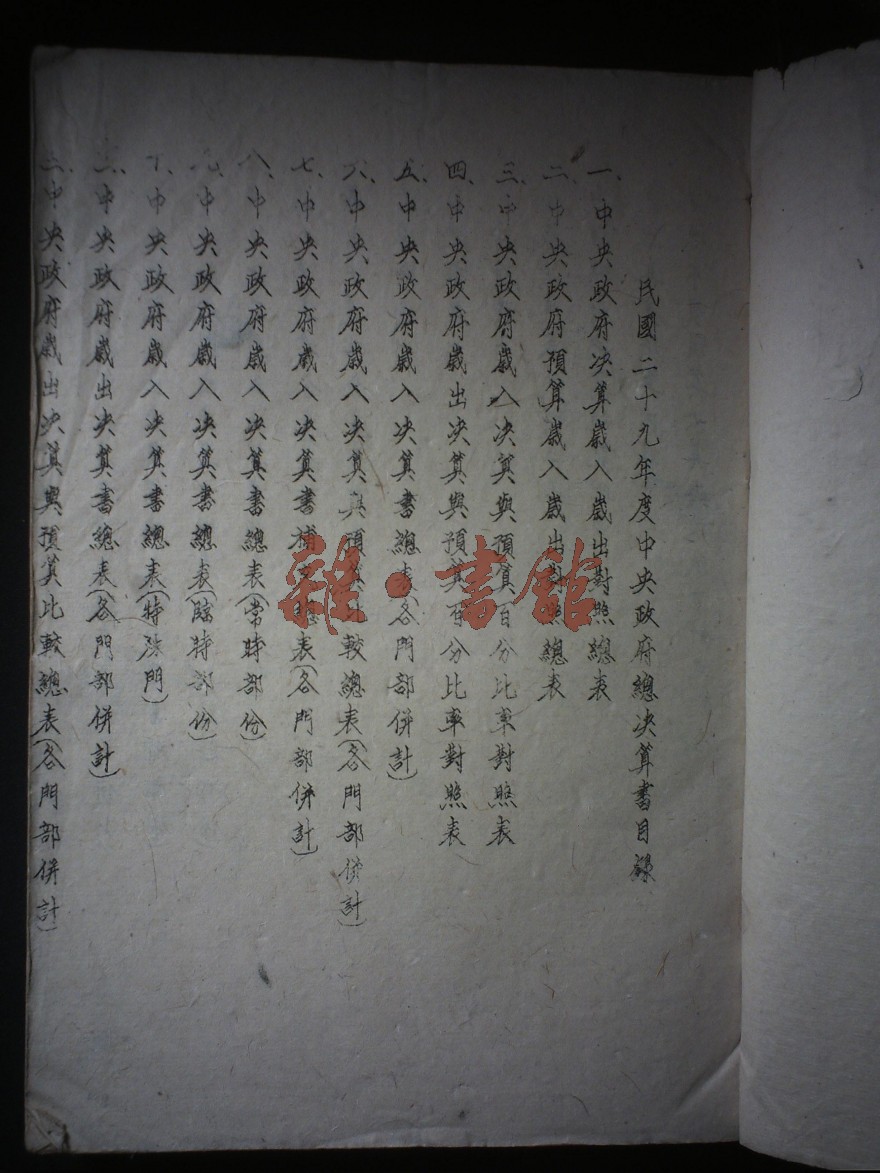 民國二十九年度中央政府總决算書目錄
一、中央政府决算歲入歲出對照總表
二、中央政府預算歲入歲出對照總表
三、中央政府歲入决算與預算百分比率對照表
四、中央政府歲出决算與預算百分比率對照表
五、中央政府歲入决算書總表(各門部併計)
六、中央政府歲入决算與預算比較總表(各門部併計)
七、中央政府歲入决算書補充總表(各門部併計)
八、中央政府歲入决算書總表(常時部份)
九、中央政府歲入决算書總表(臨時部份)
十、中央政府歲入决算書總表(特殊門)
二、中央政府歲出决算書總表(各門部併計)
三、中央政府歲出决算與預算比較總表(各門部併計)
雜·書館